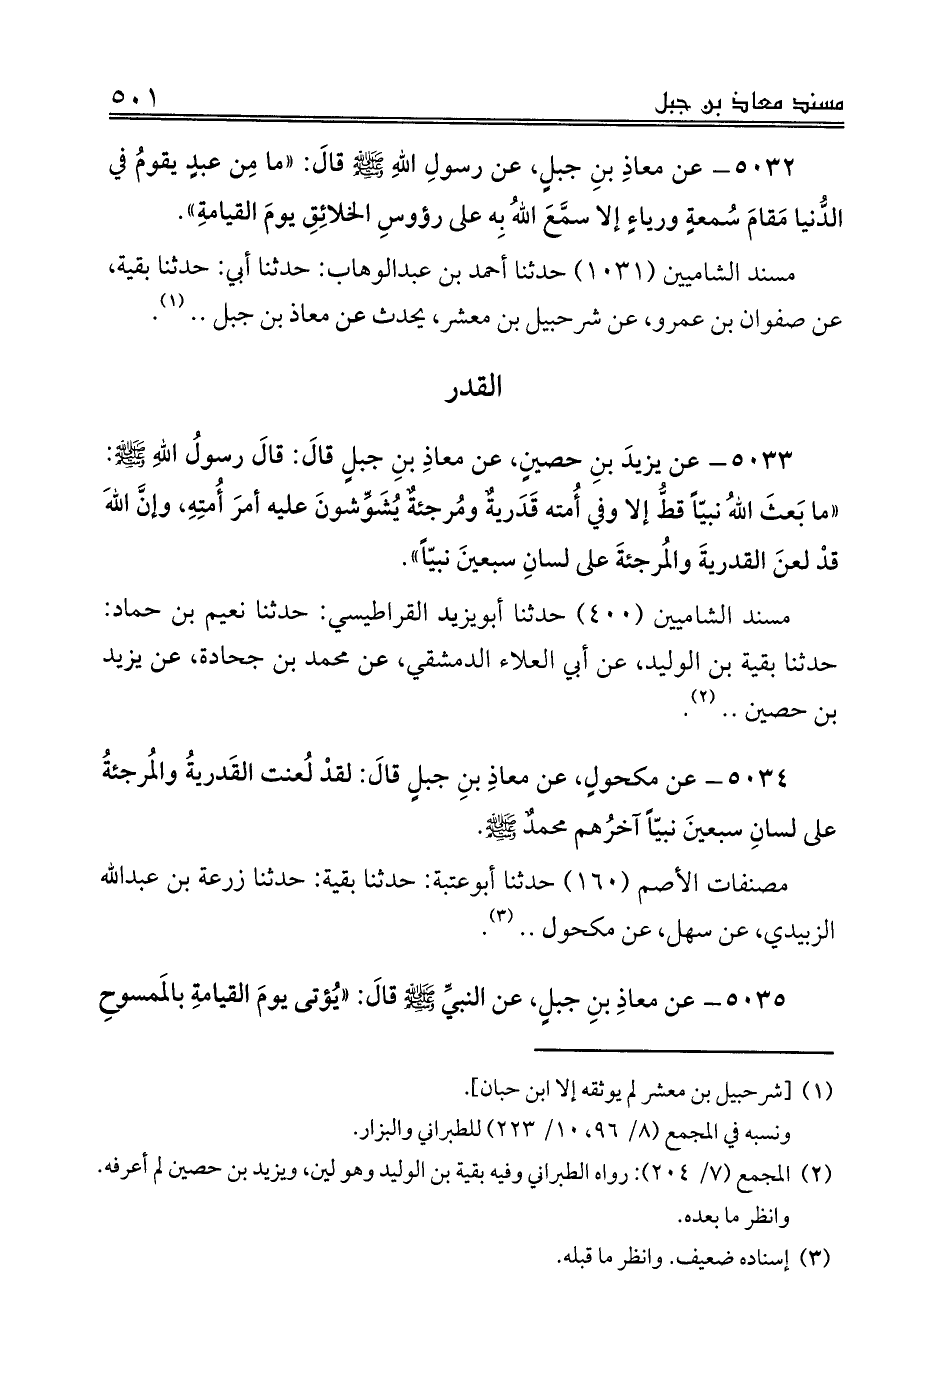 مسند معاذ بن جبل ٥٠١
٥٠٣٢ـ عن معاذِ بنِ جبلٍ، عن رسولِ اللهِ ﷺ قالَ: «ما مِن عبدٍ يقومُ في
الدُّنيا مَقامَ سُمعةٍ ورياءٍ إلا سمَّعَ اللهُ بِه على رؤوسِ الخلائِقِ يومَ القيامةِ».
مسند الشاميين (١٠٣١) حدثنا أحمد بن عبدالوهاب: حدثنا أبي: حدثنا بقية،
عن صفوان بن عمرو، عن شرحبيل بن معشر، يحدث عن معاذ بن جبل .. (١).
القدر
٥٠٣٣ـ عن يزيدَ بنِ حصينٍ، عن معاذِ بنِ جبلٍ قالَ: قالَ رسولُ اللهِ ﷺ:
«ما بَعثَ اللهُ نبيّاً قطُّ إلا وفي أُمته قَدَريةٌ ومُرجئةٌ يُشَوِّشونَ عليه أمرَ أُمتِهِ، وإنَّ اللهَ
قدْ لعنَ القدريةَ والمُرجئةَ على لسانِ سبعينَ نبيّاً».
مسند الشاميين (٤٠٠) حدثنا أبويزيد القراطيسي: حدثنا نعيم بن حماد:
حدثنا بقية بن الوليد، عن أبي العلاء الدمشقي، عن محمد بن جحادة، عن يزيد
بن حصين .. (٢).
٥٠٣٤ـ عن مكحولٍ، عن معاذِ بنِ جبلٍ قالَ: لقدْ لُعنت القَدريةُ والمُرجئةُ
على لسانِ سبعينَ نبيّاً آخرُهم محمدٌ ﷺ.
مصنفات الأصم (١٦٠) حدثنا أبوعتبة: حدثنا بقية: حدثنا زرعة بن عبدالله
الزبيدي، عن سهل، عن مكحول .. (٣).
٥٠٣٥ـ عن معاذِ بنِ جبلٍ، عن النبيِّ ﷺ قالَ: «يُؤتى يومَ القيامةِ بالمَمسوحِ
(١) [شرحبيل بن معشر لم يوثقه إلا ابن حبان].
ونسبه في المجمع (٨/ ٩٦، ١٠/ ٢٢٣) للطبراني والبزار.
(٢) المجمع (٧/ ٢٠٤): رواه الطبراني وفيه بقية بن الوليد وهو لين، ويزيد بن حصين لم أعرفه.
وانظر ما بعده.
(٣) إسناده ضعيف. وانظر ما قبله.